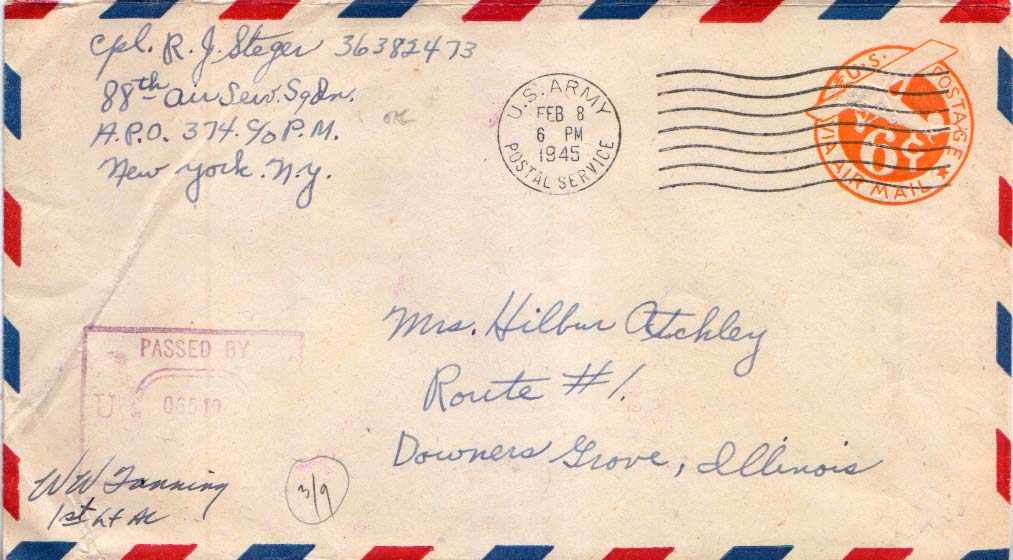 Cpl. R. J. Steger 36382473
88th Air Serv. Sqdn.
A.P.O. 374. c/o P.M.
New York. N.Y.
U.S. ARMY
FEB 8
6 PM
1945
POSTAL SERVICE
U.S. POSTAGE
6¢
VIA AIR MAIL
Mrs. Hilbur Atchley
Route #1.
Downers Grove, Illinois
PASSED BY
U 06519
WW Fanning
1st Lt AC
3/9